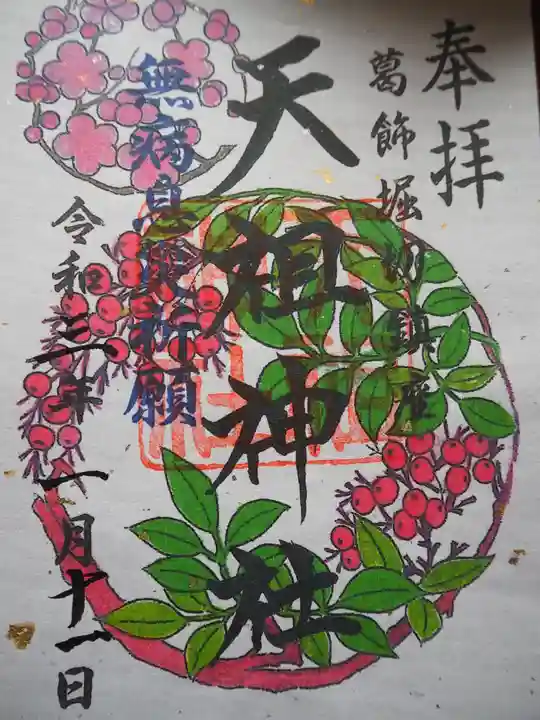 奉拝
葛飾堀切鎮座
天祖神社
無病息災祈願
令和二年 一月十一日